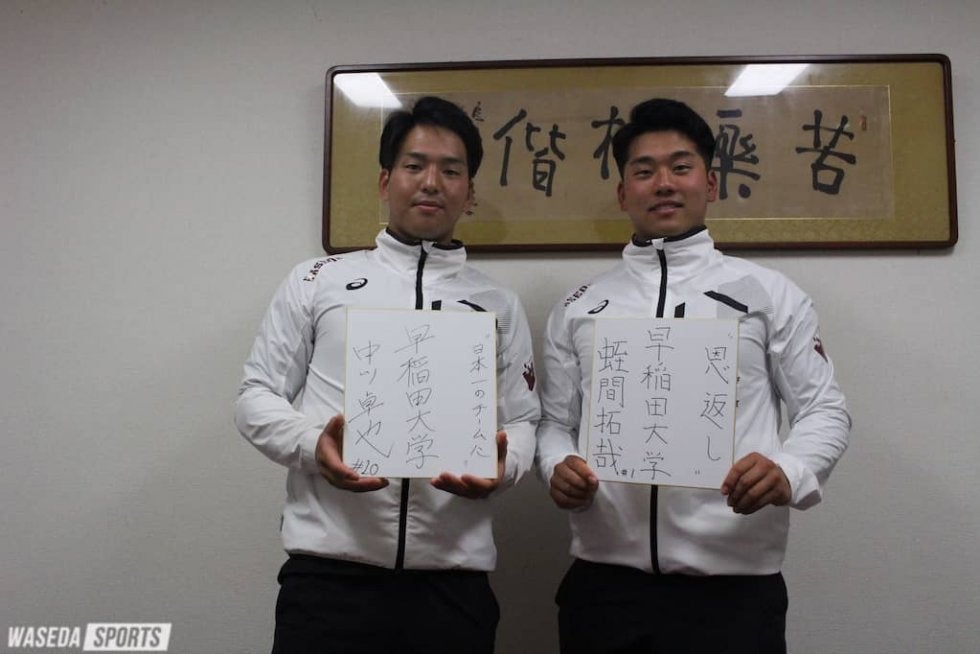 苦樂偕
"日本一のチームに"
早稲田大学
中川卓也
#20
"恩返し"
早稲田大学
蛭間拓哉
#1
WASEDA SPORTS